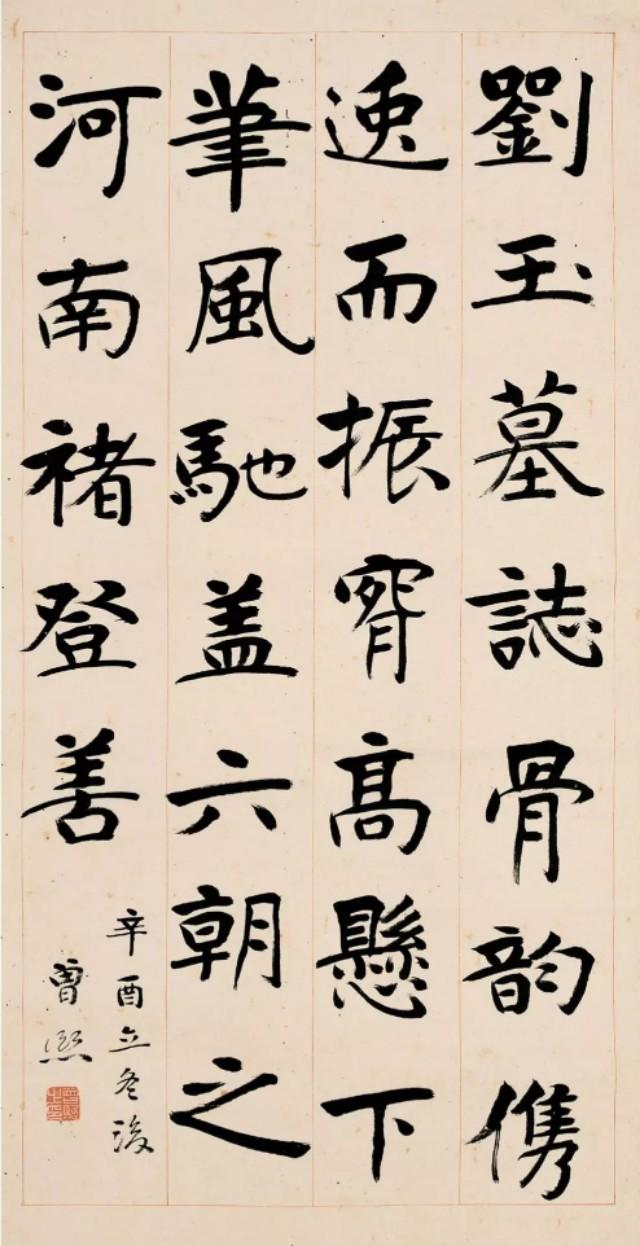 劉玉墓誌骨韵儁
速而振窅高懸下
筆風馳盖六朝之
河南褚登善
辛酉立冬後
曾熙